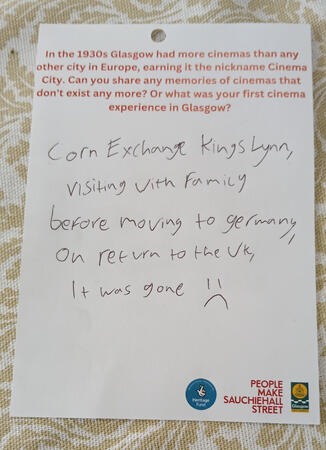 In the 1930s Glasgow had more cinemas than any
other city in Europe, earning it the nickname Cinema
City. Can you share any memories of cinemas that
don't exist any more? Or what was your first cinema
experience in Glasgow?
Corn Exchange Kings Lynn,
visiting with Family
before moving to germany,
On return to the UK,
It was gone
Heritage
Fund
PEOPLE
MAKE
SAUCHIEHALL
STREET